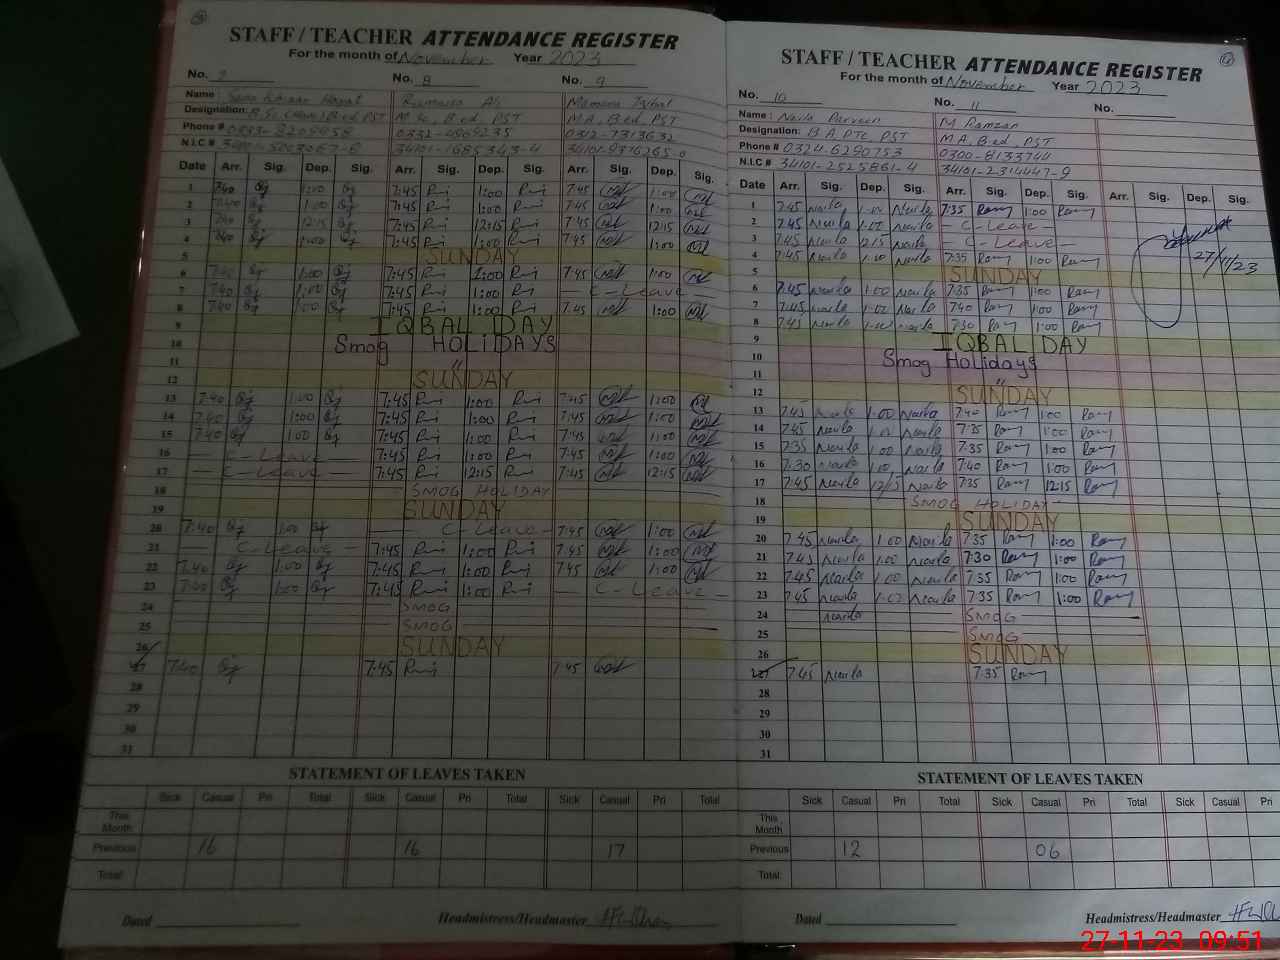 STAFF / TEACHER ATTENDANCE REGISTER
For the month of November Year 2023
No. 7 No. 8 No. 9
Name: Hayat Rumaisa Ali Memoona Iqbal
Designation: B.Ed, PST M.Sc, B.ed, PST MA, B.ed, PST
Phone # 0332-4969235 0312-7313632
N.I.C # 34101-1685343-4 34101-9376265-0
Date Arr. Sig. Dep. Sig. Arr. Sig. Dep. Sig. Arr. Sig. Dep. Sig.
1 7:40 1:00 7:45 1:00 7:45 1:00
2 7:40 1:00 7:45 1:00 7:45 1:00
3 7:40 12:15 7:45 12:15 7:45 12:15
4 7:40 1:00 7:45 1:00 7:45 1:00
5 SUNDAY
6 7:40 1:00 7:45 1:00 7:45 1:00
7 7:40 1:00 7:45 1:00 — C-Leave
8 7:40 1:00 7:45 1:00 7:45 1:00
9 IQBAL DAY
10 Smog HOLIDAYS
11 "
12 SUNDAY
13 7:40 1:00 7:45 1:00 7:45 1:00
14 7:40 1:00 7:45 1:00 7:45 1:00
15 7:40 1:00 7:45 1:00 7:45 1:00
16 — C-Leave — 7:45 1:00 7:45 1:00
17 — C-Leave — 7:45 12:15 7:45 12:15
18 SMOG HOLIDAY
19 SUNDAY
20 7:40 1:00 — C-Leave — 7:45 1:00
21 — C-Leave — 7:45 1:00 7:45 1:00
22 7:40 1:00 7:45 1:00 7:45 1:00
23 7:40 1:00 7:45 1:00 — C-Leave —
24 SMOG
25 SMOG
26 SUNDAY
27 7:40 7:45 7:45
28
29
30
31
STATEMENT OF LEAVES TAKEN
Sick Casual Pri Total Sick Casual Pri Total Sick Casual Pri Total
This Month
Previous 16 16 17
Total
Dated Headmistress/Headmaster
STAFF / TEACHER ATTENDANCE REGISTER
For the month of November Year 2023
No. 10 No. 11 No.
Name: Naila Parveen M Ramzan
Designation: B A, PTC, PST M A, B.ed, PST
Phone # 0324-6290753 0300-8133744
N.I.C # 34101-2525861-4 34101-2314447-9
Date Arr. Sig. Dep. Sig. Arr. Sig. Dep. Sig. Arr. Sig. Dep. Sig.
1 7:45 Naila 1:00 Naila 7:35 Ram 1:00 Ram
2 7:45 Naila 1:00 Naila — C-Leave —
3 7:45 Naila 12:15 Naila — C-Leave —
4 7:45 Naila 1:00 Naila 7:35 Ram 1:00 Ram 27/11/23
5 SUNDAY
6 7:45 Naila 1:00 Naila 7:35 Ram 1:00 Ram
7 7:45 Naila 1:00 Naila 7:40 Ram 1:00 Ram
8 7:45 Naila 1:00 Naila 7:30 Ram 1:00 Ram
9 IQBAL DAY
10 Smog Holidays
11 "
12 SUNDAY
13 7:45 Naila 1:00 Naila 7:40 Ram 1:00 Ram
14 7:45 Naila 1:00 Naila 7:35 Ram 1:00 Ram
15 7:35 Naila 1:00 Naila 7:35 Ram 1:00 Ram
16 7:30 Naila 1:00 Naila 7:40 Ram 1:00 Ram
17 7:45 Naila 12/15 Naila 7:35 Ram 12:15 Ram
18 SMOG HOLIDAY
19 SUNDAY
20 7:45 Naila 1:00 Naila 7:35 Ram 1:00 Ram
21 7:45 Naila 1:00 Naila 7:30 Ram 1:00 Ram
22 7:45 Naila 1:00 Naila 7:35 Ram 1:00 Ram
23 7:45 Naila 1:00 Naila 7:35 Ram 1:00 Ram
24 Naila SMOG
25 SMOG
26 SUNDAY
27 7:45 Naila 7:35 Ram
28
29
30
31
STATEMENT OF LEAVES TAKEN
Sick Casual Pri Total Sick Casual Pri Total Sick Casual Pri
This Month
Previous 12 06
Total
Dated Headmistress/Headmaster
27-11-23 09:51